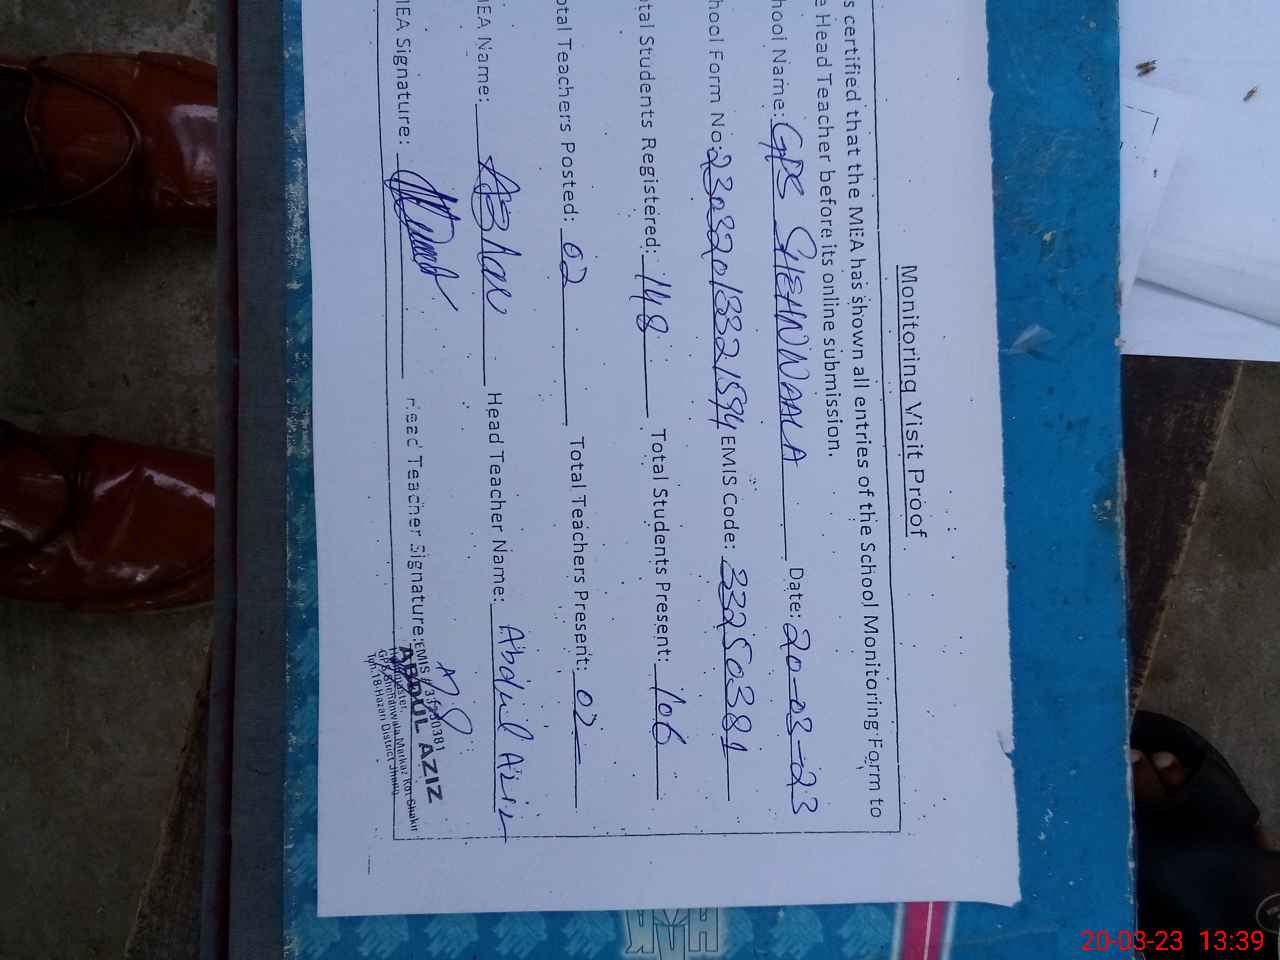 Monitoring Visit Proof
s certified that the MEA has shown all entries of the School Monitoring Form to
e Head Teacher before its online submission.
hool Name: GPS SHEHNWAALA Date: 20-03-23
hool Form No: 23032013321594 EMIS Code: 33250381
tal Students Registered: 148 Total Students Present: 106
otal Teachers Posted: 02 Total Teachers Present: 02
MEA Name: Head Teacher Name: Abdul Aziz
MEA Signature: Head Teacher Signature:
EMIS # 33250381
ABDUL AZIZ
Headmaster,
GPS Shehanwala Markaz Kot Shakir
Teh:18-Hazari District Jhang
20-03-23 13:39